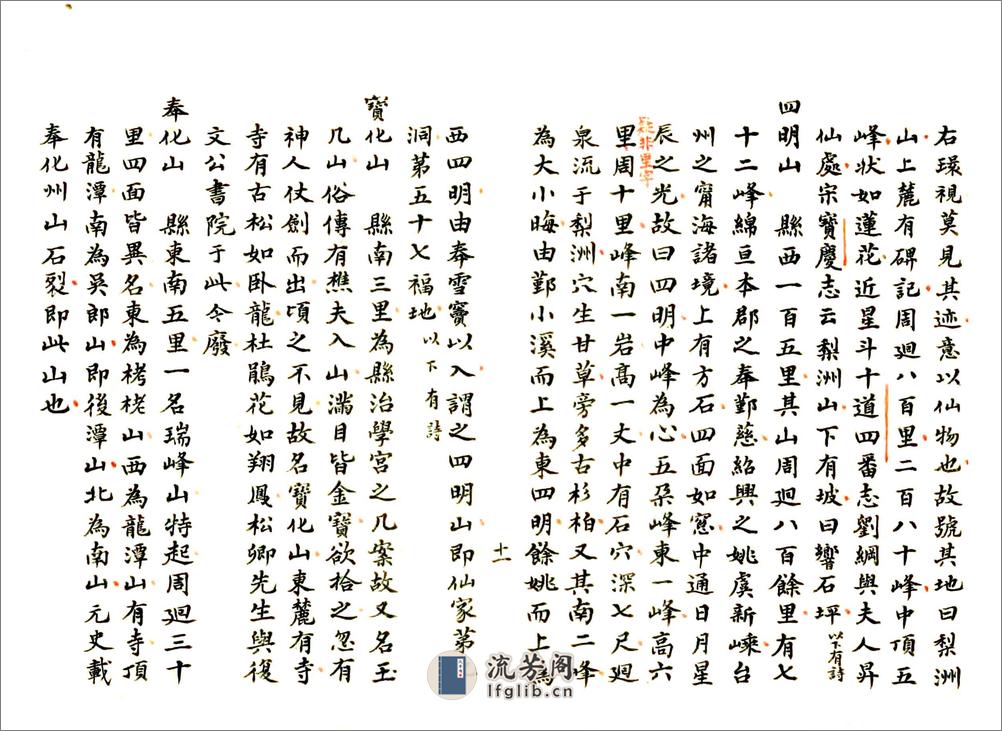 右環視莫見其迹意以仙物也故號其地曰梨洲
山上麓有碑記周廻八百里二百八十峰中頂五
峰狀如蓮花近星斗十道四番志劉綱與夫人昇
仙處宋寶慶志云梨洲山下有坡曰響石坪以下有詩
四明山 縣西一百五里其山周廻八百餘里有七
十二峰綿亘本郡之奉鄞慈紹興之姚虞新嵊台
州之甯海諸境上有方石四面如窓中通日月星
辰之光故曰四明中峰為心五朵峰東一峰高六
疑非里字
里周十里峰南一岩高一丈中有石穴深七尺廻
泉流于梨洲穴生甘草旁多古杉柏又其南二峰
為大小晦由鄞小溪而上為東四明餘姚而上為
十一
西四明由奉雪竇以入謂之四明山即仙家第九
洞第五十七福地以下有詩
寶化山 縣南三里為縣治學宮之几案故又名玉
几山俗傳有樵夫入山滿目皆金寶欲拾之忽有
神人仗劍而出頃之不見故名寶化山東麓有寺
寺有古松如卧龍杜鵑花如翔鳳松卿先生與復
文公書院于此今廢
奉化山 縣東南五里一名瑞峰山特起周廻三十
里四面皆異名東為栲栳山西為龍潭山有寺頂
有龍潭南為吳郎山即後潭山北為南山元史載
奉化州山石裂即此山也
流芳阁
lfglib.cn